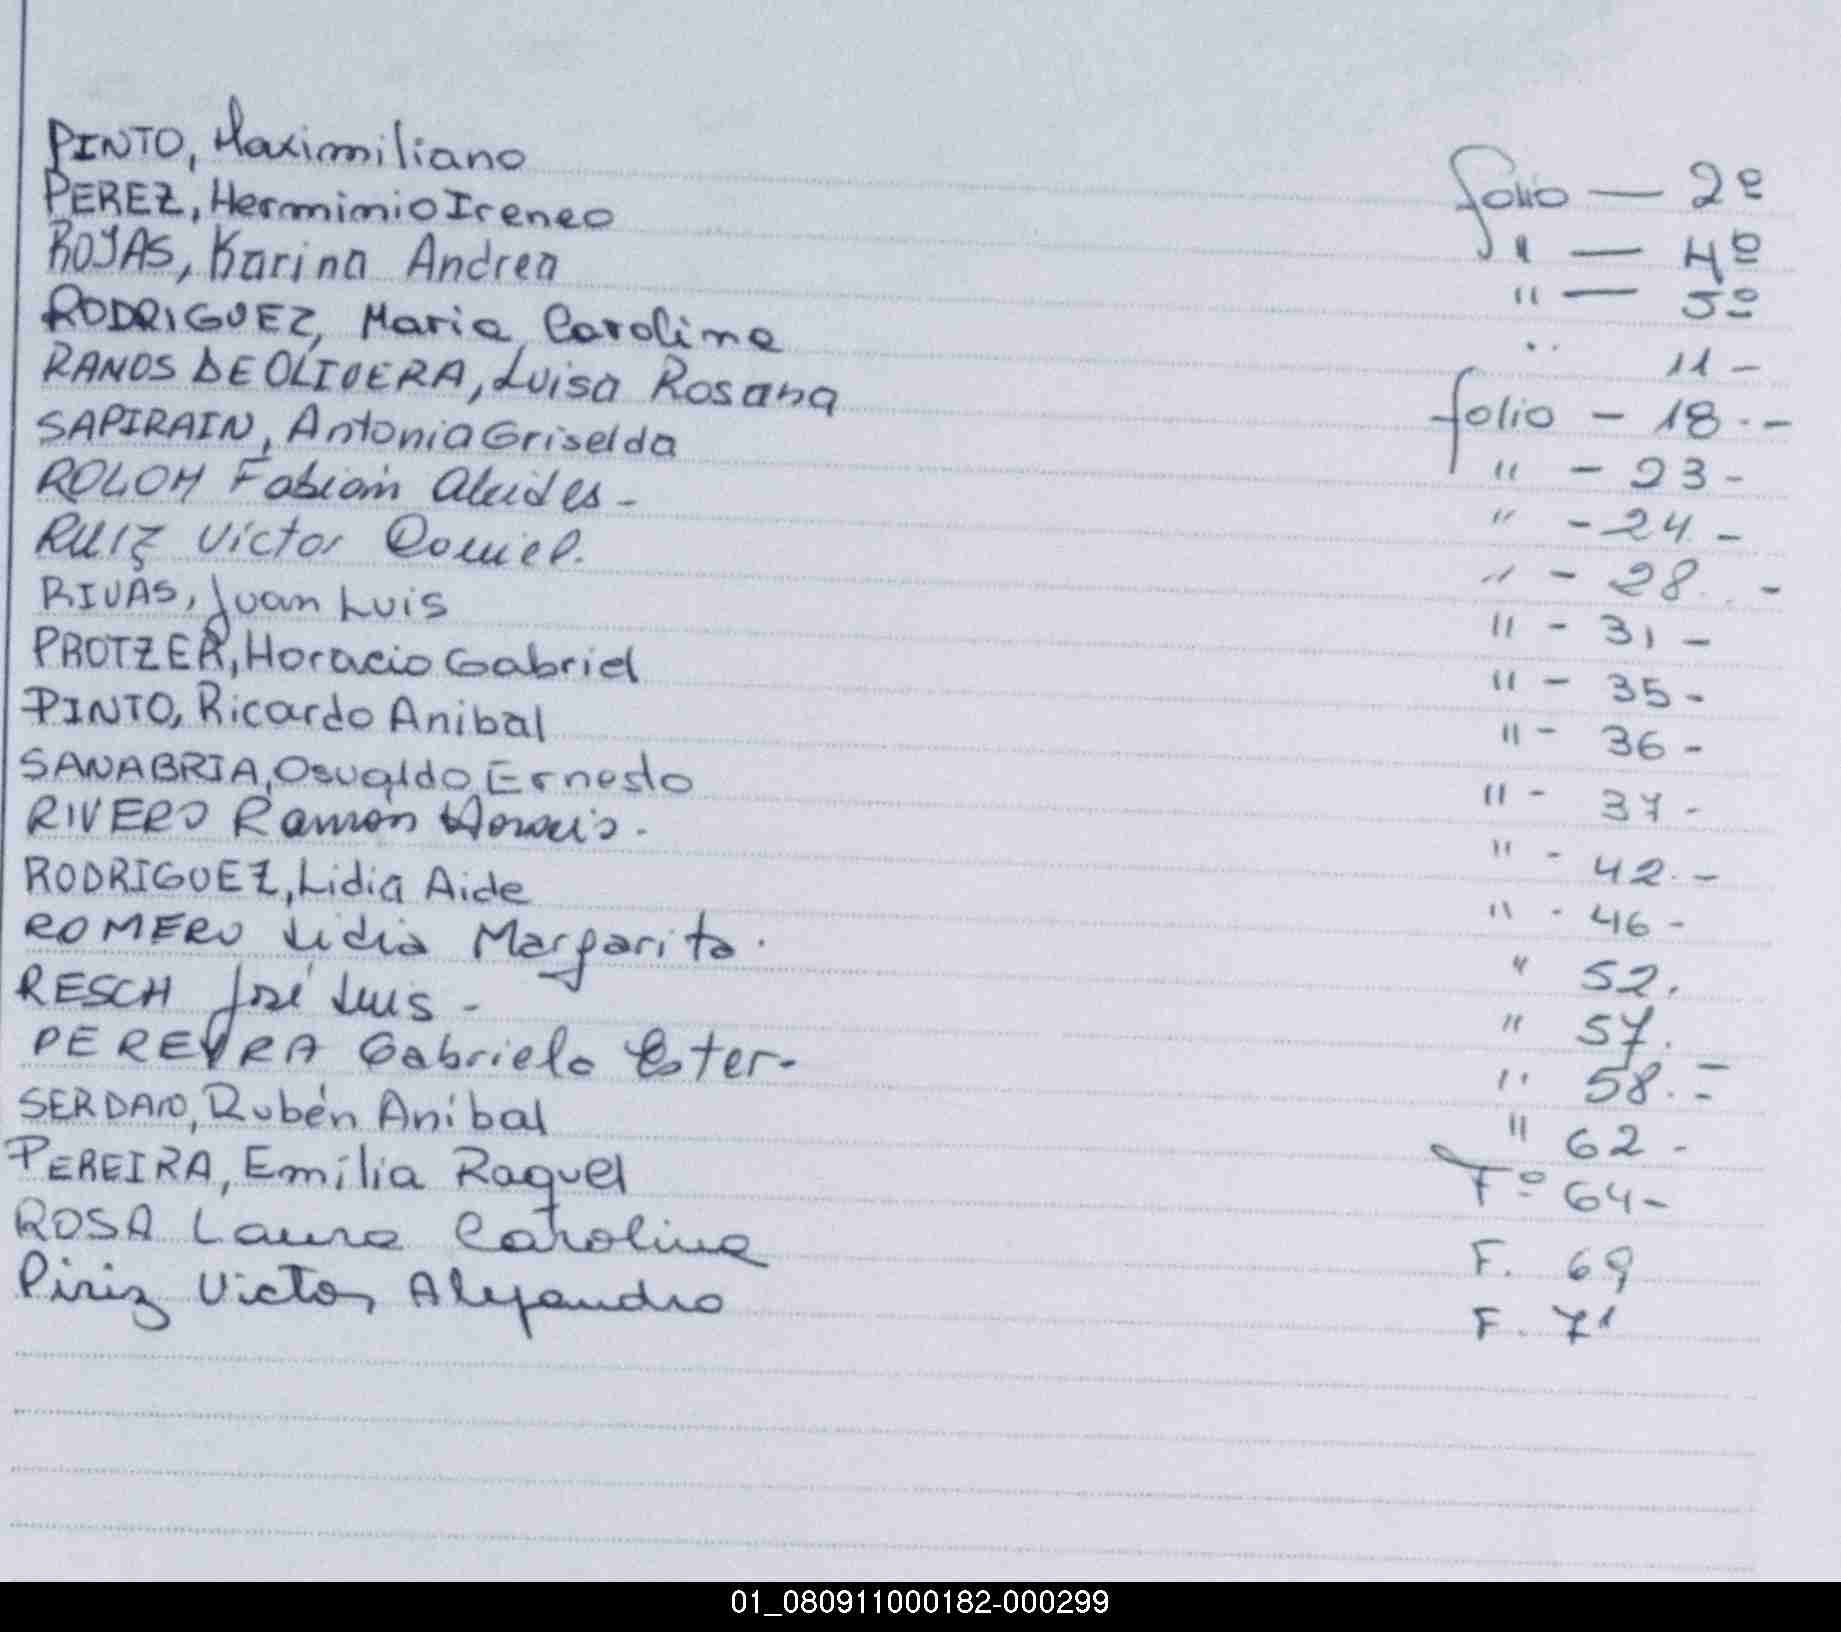 PINTO, Maximiliano folio — 2º
PEREZ, Herminio Ireneo " — 4º
ROJAS, Karina Andrea " — 5º
RODRIGUEZ, Maria Carolina " 11 -
RAMOS DE OLIVERA, Luisa Rosana folio - 18.-
SAPIRAIN, Antonia Griselda " - 23 -
ROLOM Fabián Alcides - " - 24. -
RUIZ Victor Daniel. " - 28. . -
RIVAS, Juan Luis " - 31 -
PROTZER, Horacio Gabriel " - 35 -
PINTO, Ricardo Anibal " - 36 -
SANABRIA, Osvaldo Ernesto " - 37 -
RIVERO Ramon Horacio. " - 42. -
RODRIGUEZ, Lidia Aide " - 46 -
ROMERO Lidia Margarita. " 52.
RESCH José Luis - " 57.
PEREYRA Gabriela Ester- " 58. =
SERDAN, Rubén Aníbal " 62 -
PEREIRA, Emilia Raquel Fº 64 -
ROSA Laura Carolina F. 69
Piriz Victor Alejandro F. 71
01_080911000182-000299